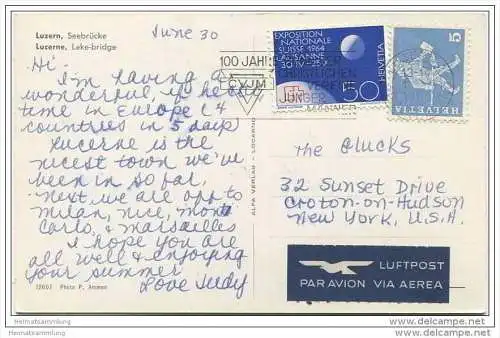 Luzern, Seebrücke
Lucerne, Lake-bridge
June 30
Hi.
I'm having a
wonderful, if hectic
time in Europe (4
countries in 5 days)
Lucerne is the
nicest town we've
been in so far.
Next we are off to
Milan, Nice, Mont
Carlo, & Marsailles
I hope you are
all well & enjoying
your summer
Love Judy
Photo P. Ammon
ALFA VERLAG - LOCARNO
100 JAHRE
CVJM
EXPOSITION
NATIONALE
SUISSE 1964
LAUSANNE
50
HELVETIA
5
HELVETIA
CHRISTLICHER
VEREIN
JUNGER
The Glucks
32 Sunset Drive
Croton-on-Hudson
New York, U.S.A.
LUFTPOST
PAR AVION VIA AEREA
Heimatsammlung
http://Heimatsammlung.com